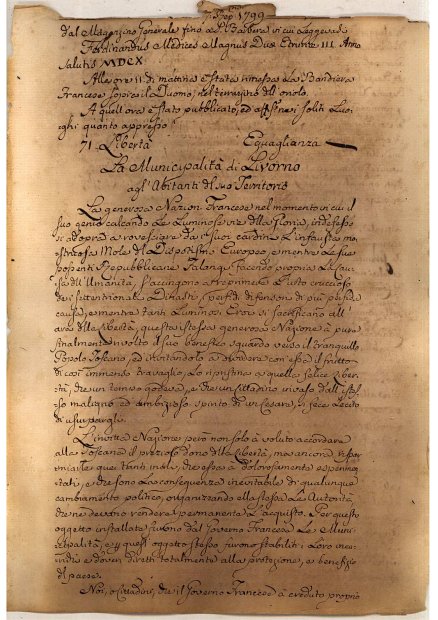 7. Sep. 1799
dal Magazzino Generale fino a S. Barbera in cui Leggevasi
Ferdinandus Medices Magnus Dux Etruriæ III Anno
Salutis MDCX
Alle ore 11 di mattina è stata rimossa La Bandiera
Francese sopra il Duomo, nel terrazzino dell'oriolo.
A quell'ora è stato pubblicato, ed affisso nei soliti Luo-
ghi quanto appresso
71 Libertà Eguaglianza
La Municipalità di Livorno
agl'Abitanti del suo Territorio
La generosa Nazione Francese nel momento in cui il
suo genio calcando le Luminose vie della Gloria, indefesso
si adopra a rovesciare da i suoi cardini L'infausta mo-
struosa Mole del Dispotismo Europeo, e mentre le sue
possenti Repubblicane Falangi facendo propria La cau-
sa dell'Umanità, s'accingono a reprimere L'urto cruccioso
dei settentrionali Dinasti, perfidi difensori di più perfida
causa, e mentre tanti Luminosi Eroi si sacrificano all'
are della Libertà, questa istessa generosa Nazione à pure
finalmente rivolto il suo benefico sguardo verso il tranquillo
Popolo Toscano, ed invitandolo a dividere con essa il frutto
di così immenso travaglio, Lo ripristina a quella felice Liber-
tà, che un tempo godeva, e che un Cittadino invaso dall'istes-
so maligno ed ambizioso spirito di un Cesare, si fece Lecito
di usurpargli.
L'invitta Nazione però non solo à voluto accordare
alla Toscana il prezioso dono della Libertà, ma ancora rispar-
miarle quei tanti mali, che essa à dolorosamente esperimen-
tati, e che sono La conseguenza inevitabile di qualunque
cambiamento politico, organizzando ella stessa Le Autorità
che ne devano rendere permanente L'acquisto. Per questo
oggetto installate furono dal Governo Francese Le Muni-
cipalità, e per quest'oggetto stesso furono stabiliti i Loro incu-
in di e doveri diretti totalmente alla protezione, e benefizio
del paese.
Noi, o Cittadini, che il Governo Francese à creduto proprio